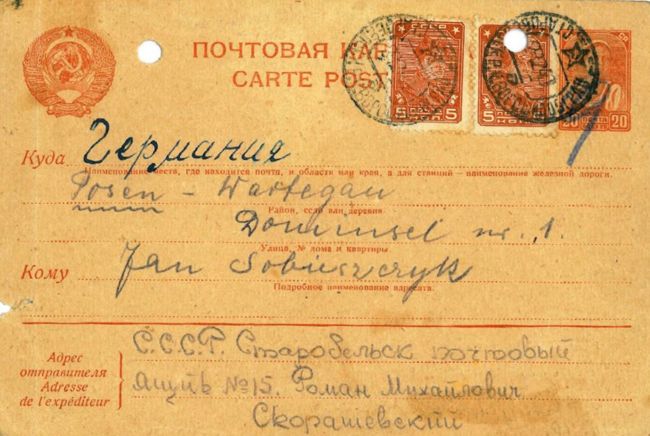 ПОЧТОВАЯ
CARTE
5 5
20 20
Куда Германия
Наименование места, где находится почта, и области или края, а для станций – наименование железной дороги.
Posen – Wartegau
Район, село или деревня
Dominsel nr. 1.
Улица, № дома и квартиры
Кому Jan Sobieszczyk
Подробное наименование адресата.
Адрес отправителя
Adresse de l'expéditeur
С.С.С.Р. Старобельск почтовый
ящик №15. Роман Михайлович
Скорашевский